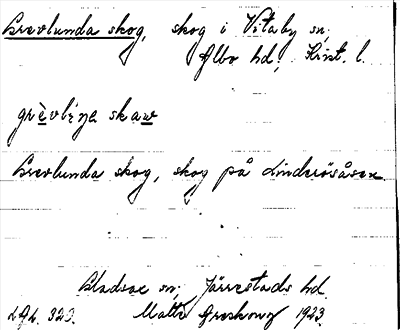 Grevlunda skog, skog i Vitaby sn;
Albo hd; Krist. l.
grèvlúna skaw
Grevlunda skog, skog på Linderösåsen
Bladsac sn; Järrestads hd.
1923